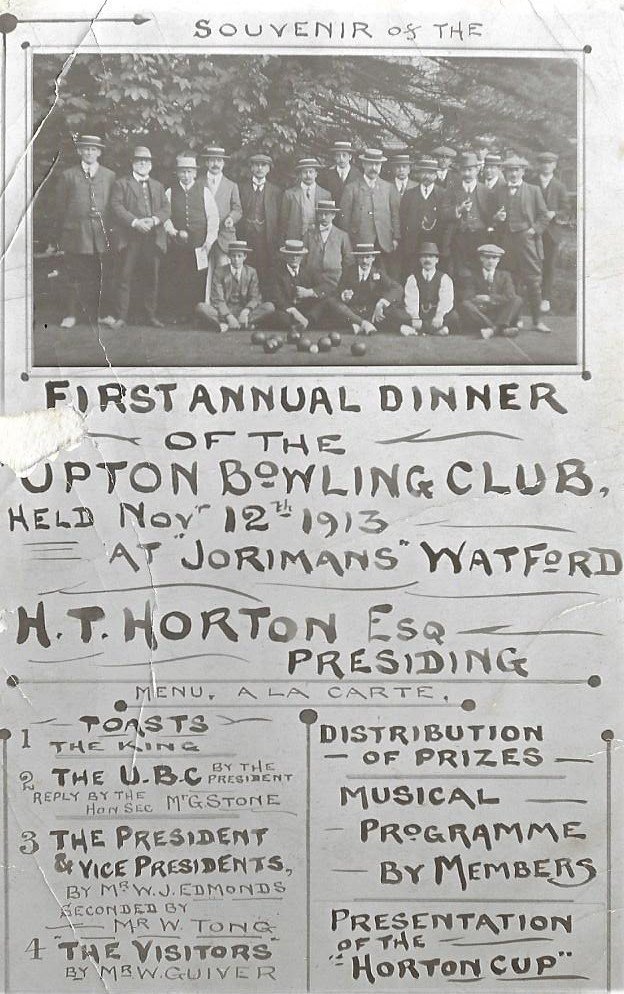 SOUVENIR of THE
FIRST ANNUAL DINNER
OF THE
UPTON BOWLING CLUB,
HELD Novr 12th 1913
AT "JORIMANS" WATFORD
H.T. HORTON Esq
PRESIDING
MENU. A LA CARTE.
TOASTS
1 THE KING
2 THE U.B.C BY THE PRESIDENT
REPLY BY THE HON SEC Mr G STONE
3 THE PRESIDENT
& VICE PRESIDENTS,
BY Mr W.J. EDMONDS
SECONDED BY
MR W. TONG
4 "THE VISITORS"
BY MR W. GUIVER
DISTRIBUTION
OF PRIZES
MUSICAL
PROGRAMME
BY MEMBERS
PRESENTATION
OF THE
"HORTON CUP"